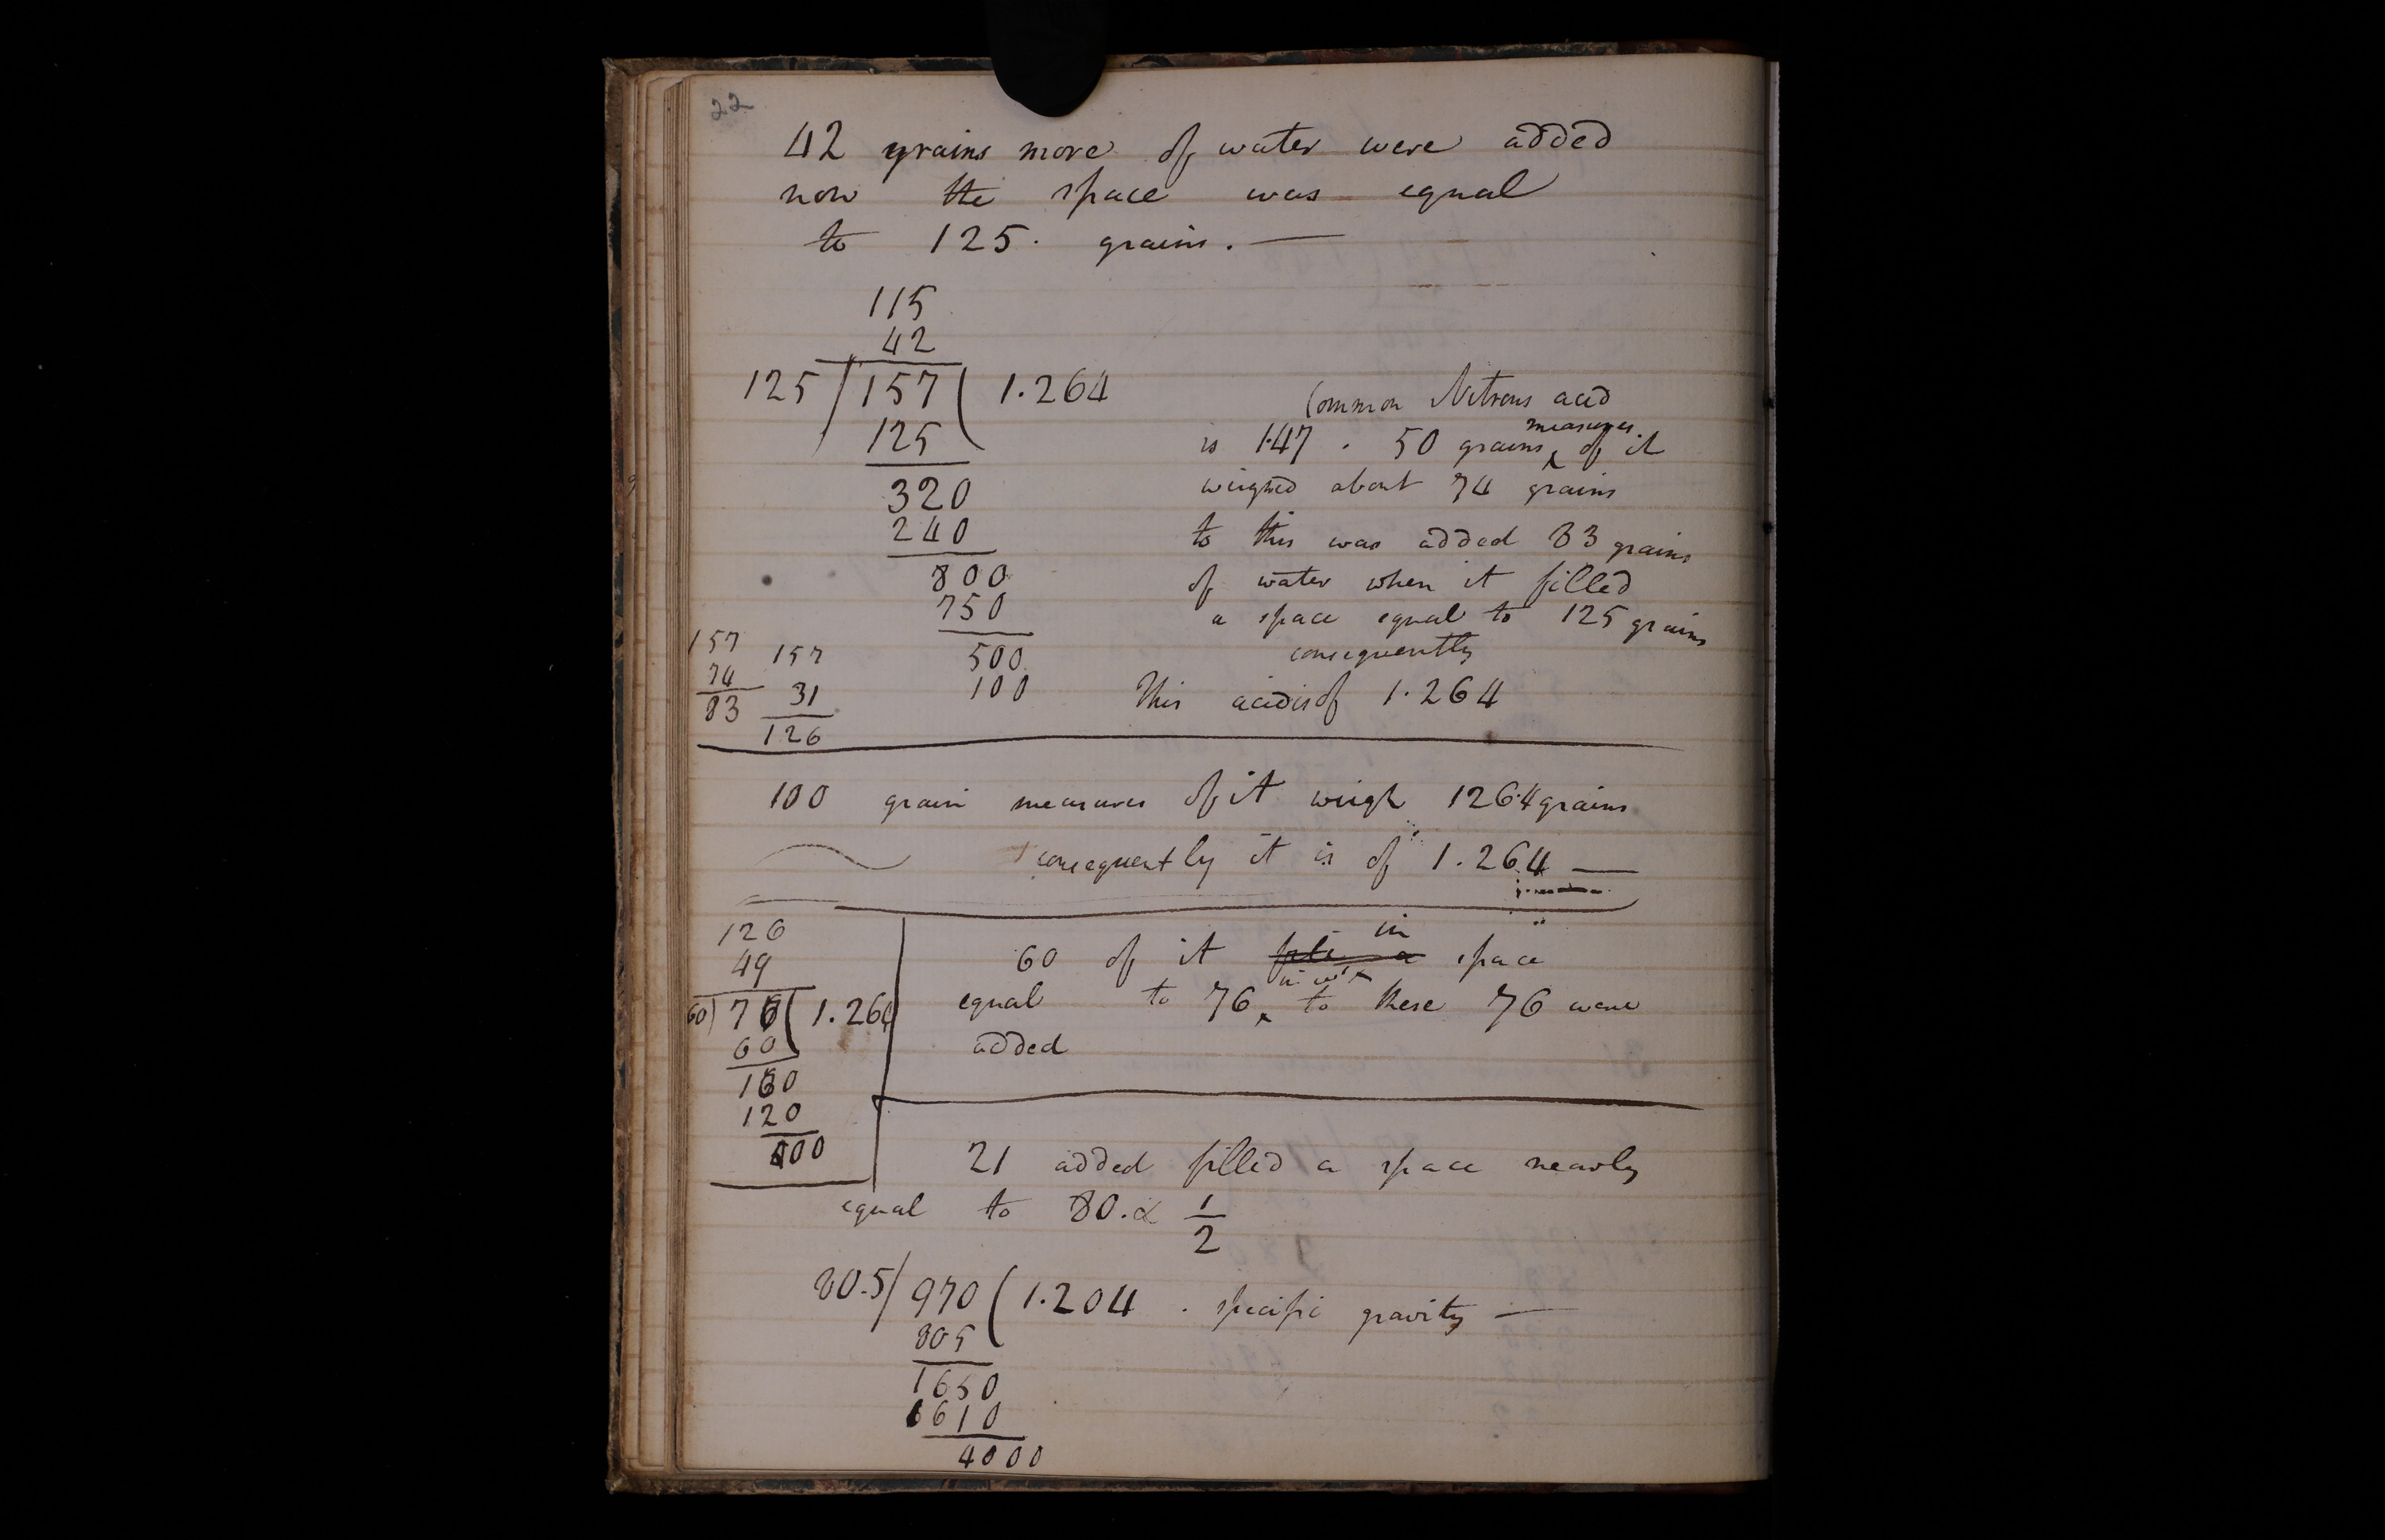 22
42 grains more of water were added
now the space was equal
to 125. grains. —
115
42
125 / 157 ( 1.264
125
320
240
800
750
500
100
Common Nitrous acid
is 1.47 . 50 grains measures of it
weighed about 74 grains
to this was added 83 grains
of water when it filled
a space equal to 125 grains
consequently
This acid is of 1.264
157
74
83
157
31
126
100 grain measures of it weigh 126.4 grains
consequently it is of 1.264 —
126
49
60) 76 ( 1.266
60
160
120
400
60 of it in space
equal to 76 to these 76 were
added
21 added filled a space nearly
equal to 80. & 1/2
80.5 / 970 ( 1.204 . specific gravity —
805
1650
1610
4000